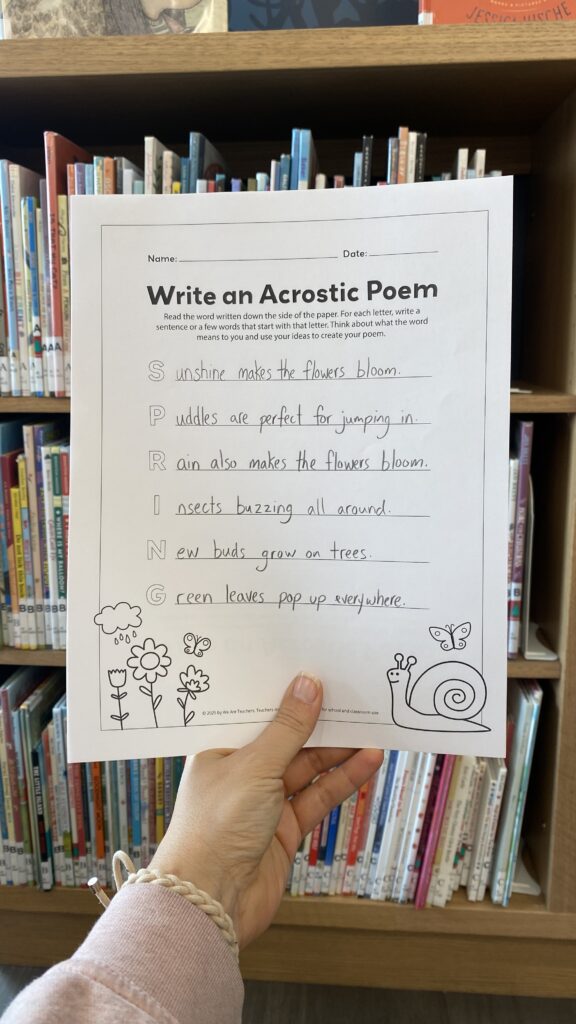 JESSICA HISCHE
Name:
Date:
Write an Acrostic Poem
Read the word written down the side of the paper. For each letter, write a
sentence or a few words that start with that letter. Think about what the word
means to you and use your ideas to create your poem.
Sunshine makes the flowers bloom.
Puddles are perfect for jumping in.
Rain also makes the flowers bloom.
Insects buzzing all around.
New buds grow on trees.
Green leaves pop up everywhere.
© 2025 by We Are Teachers. Teachers
for school and classroom use.